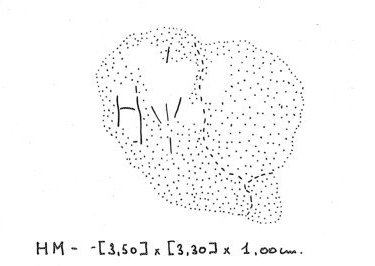 HM - -[3,50] x [3,30] x 1,00 cm.